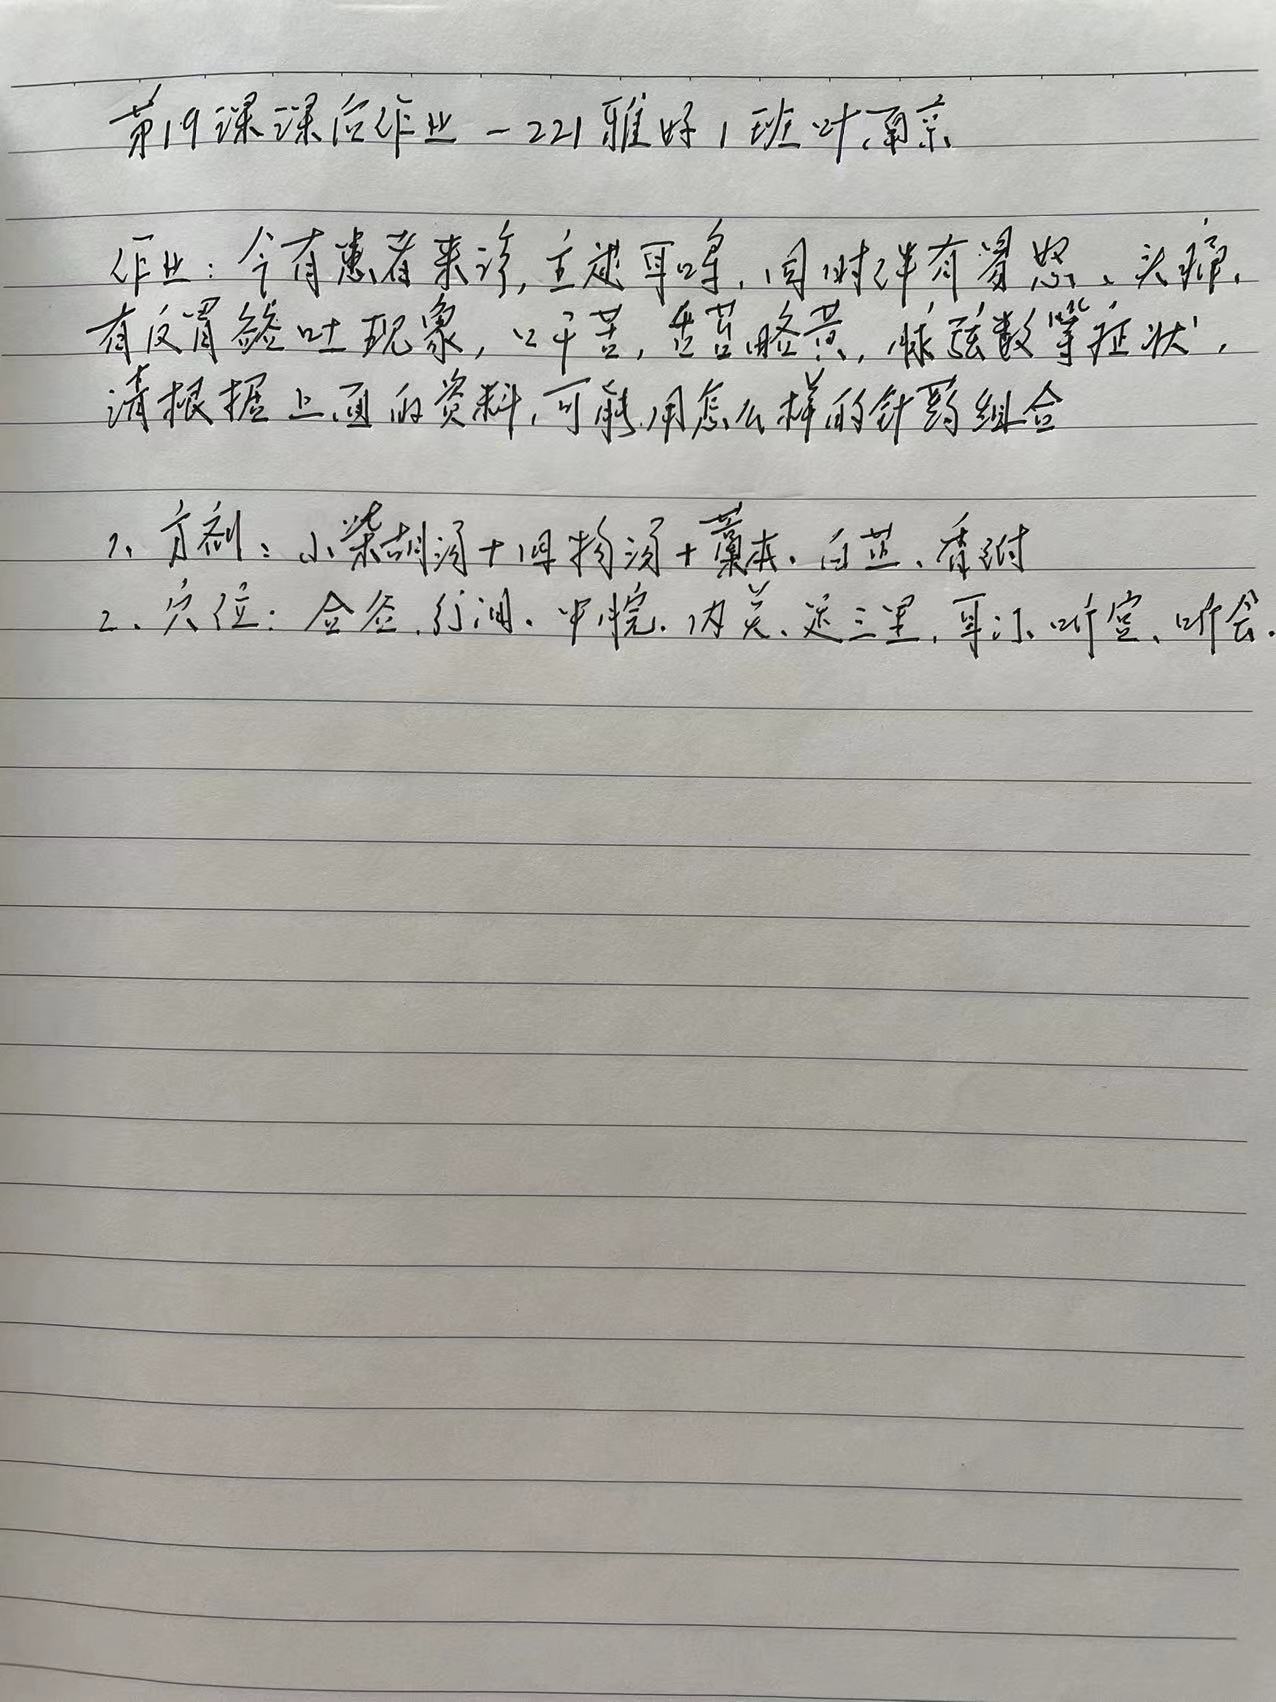 第19课课后作业-221雅好1班叶南京
作业:今有患者来诊,主述耳鸣,同时伴有易怒、头痛,
有反胃欲吐现象,口干苦,舌苔略黄,脉弦数等症状,
请根据上面的资料,可能用怎么样的针药组合
1、方剂:小柴胡汤+四物汤+藁本、白芷、香附
2、穴位:合谷、行间、中脘、内关、足三里、耳门、听宫、听会.